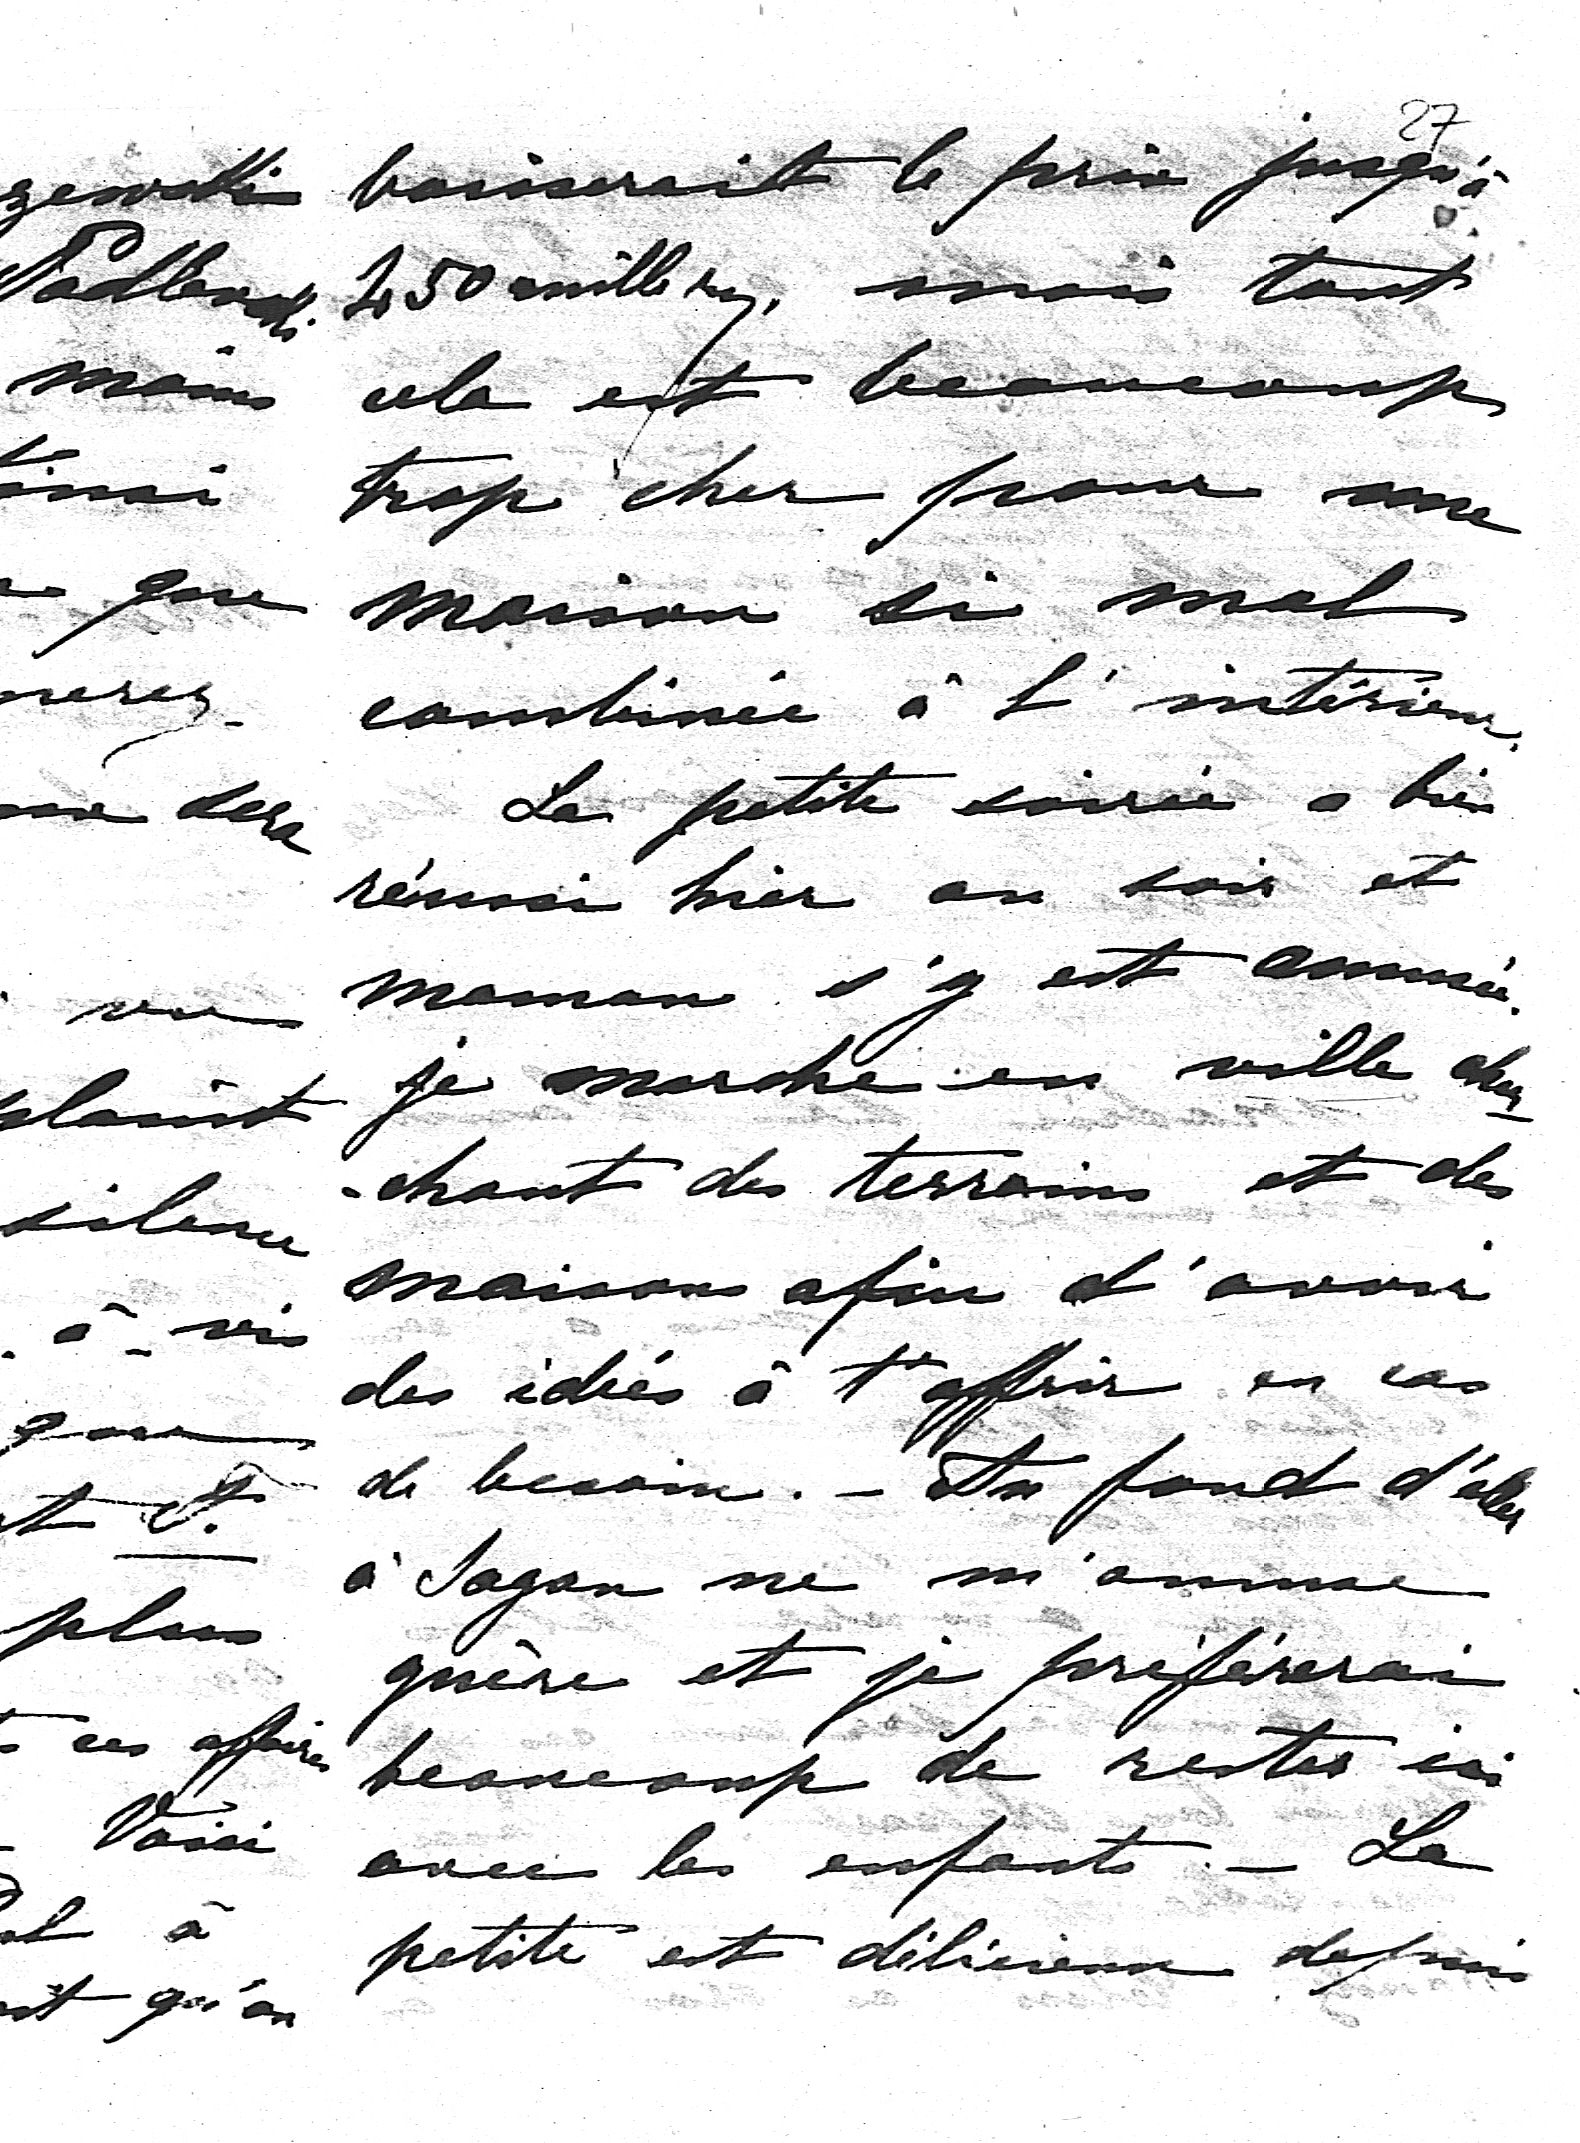 27
baisserait le prix jusqu'à
450 mille rs, mais tout
cela est beaucoup
trop cher pour une
maison si mal
combinée à l'intérieur.
La petite soirée a bien
réussi hier au soir et
maman s'y est amusée.
je marche en ville cher
-chant des terrains et des
maisons afin d'avoir
des idées à t'offrir en cas
de besoin. - Au fond d'aller
à Sagan ne m'amuse
guère et je préférerai
beaucoup de rester ici
avec les enfants. - La
petite est délicieuse depuis
zewski
Podhorski
mains
que
nerez.
sera
vous
plairt
silence
à - vis
que
plus
ces affaires
Voici
à
qu'on